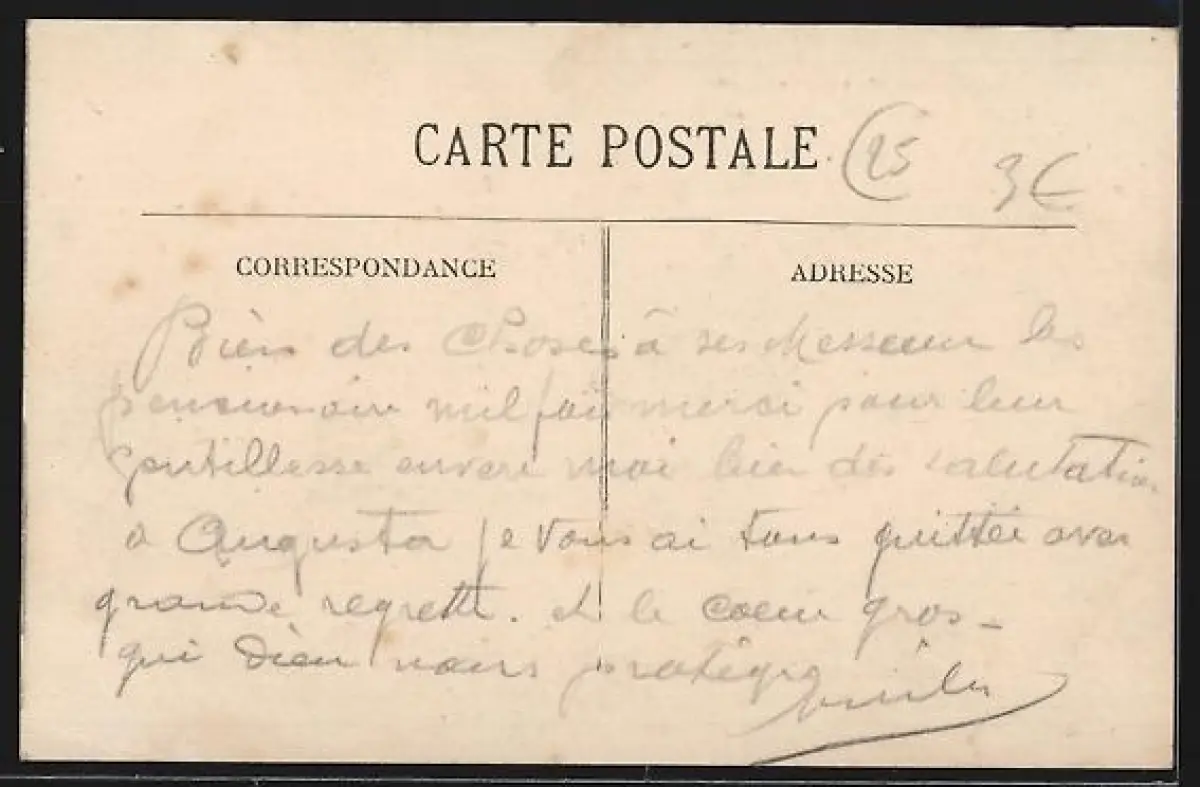 CARTE POSTALE.
25
3€
CORRESPONDANCE
ADRESSE
Bien des choses à ses Messeur les
pensionnaire mil fois merci pour leur
gentillesse envere moi bien des salutation
a Augusta je vous ai tous quittée avec
grande regrette. et le coeur gros -
qui Dieu nous protègre